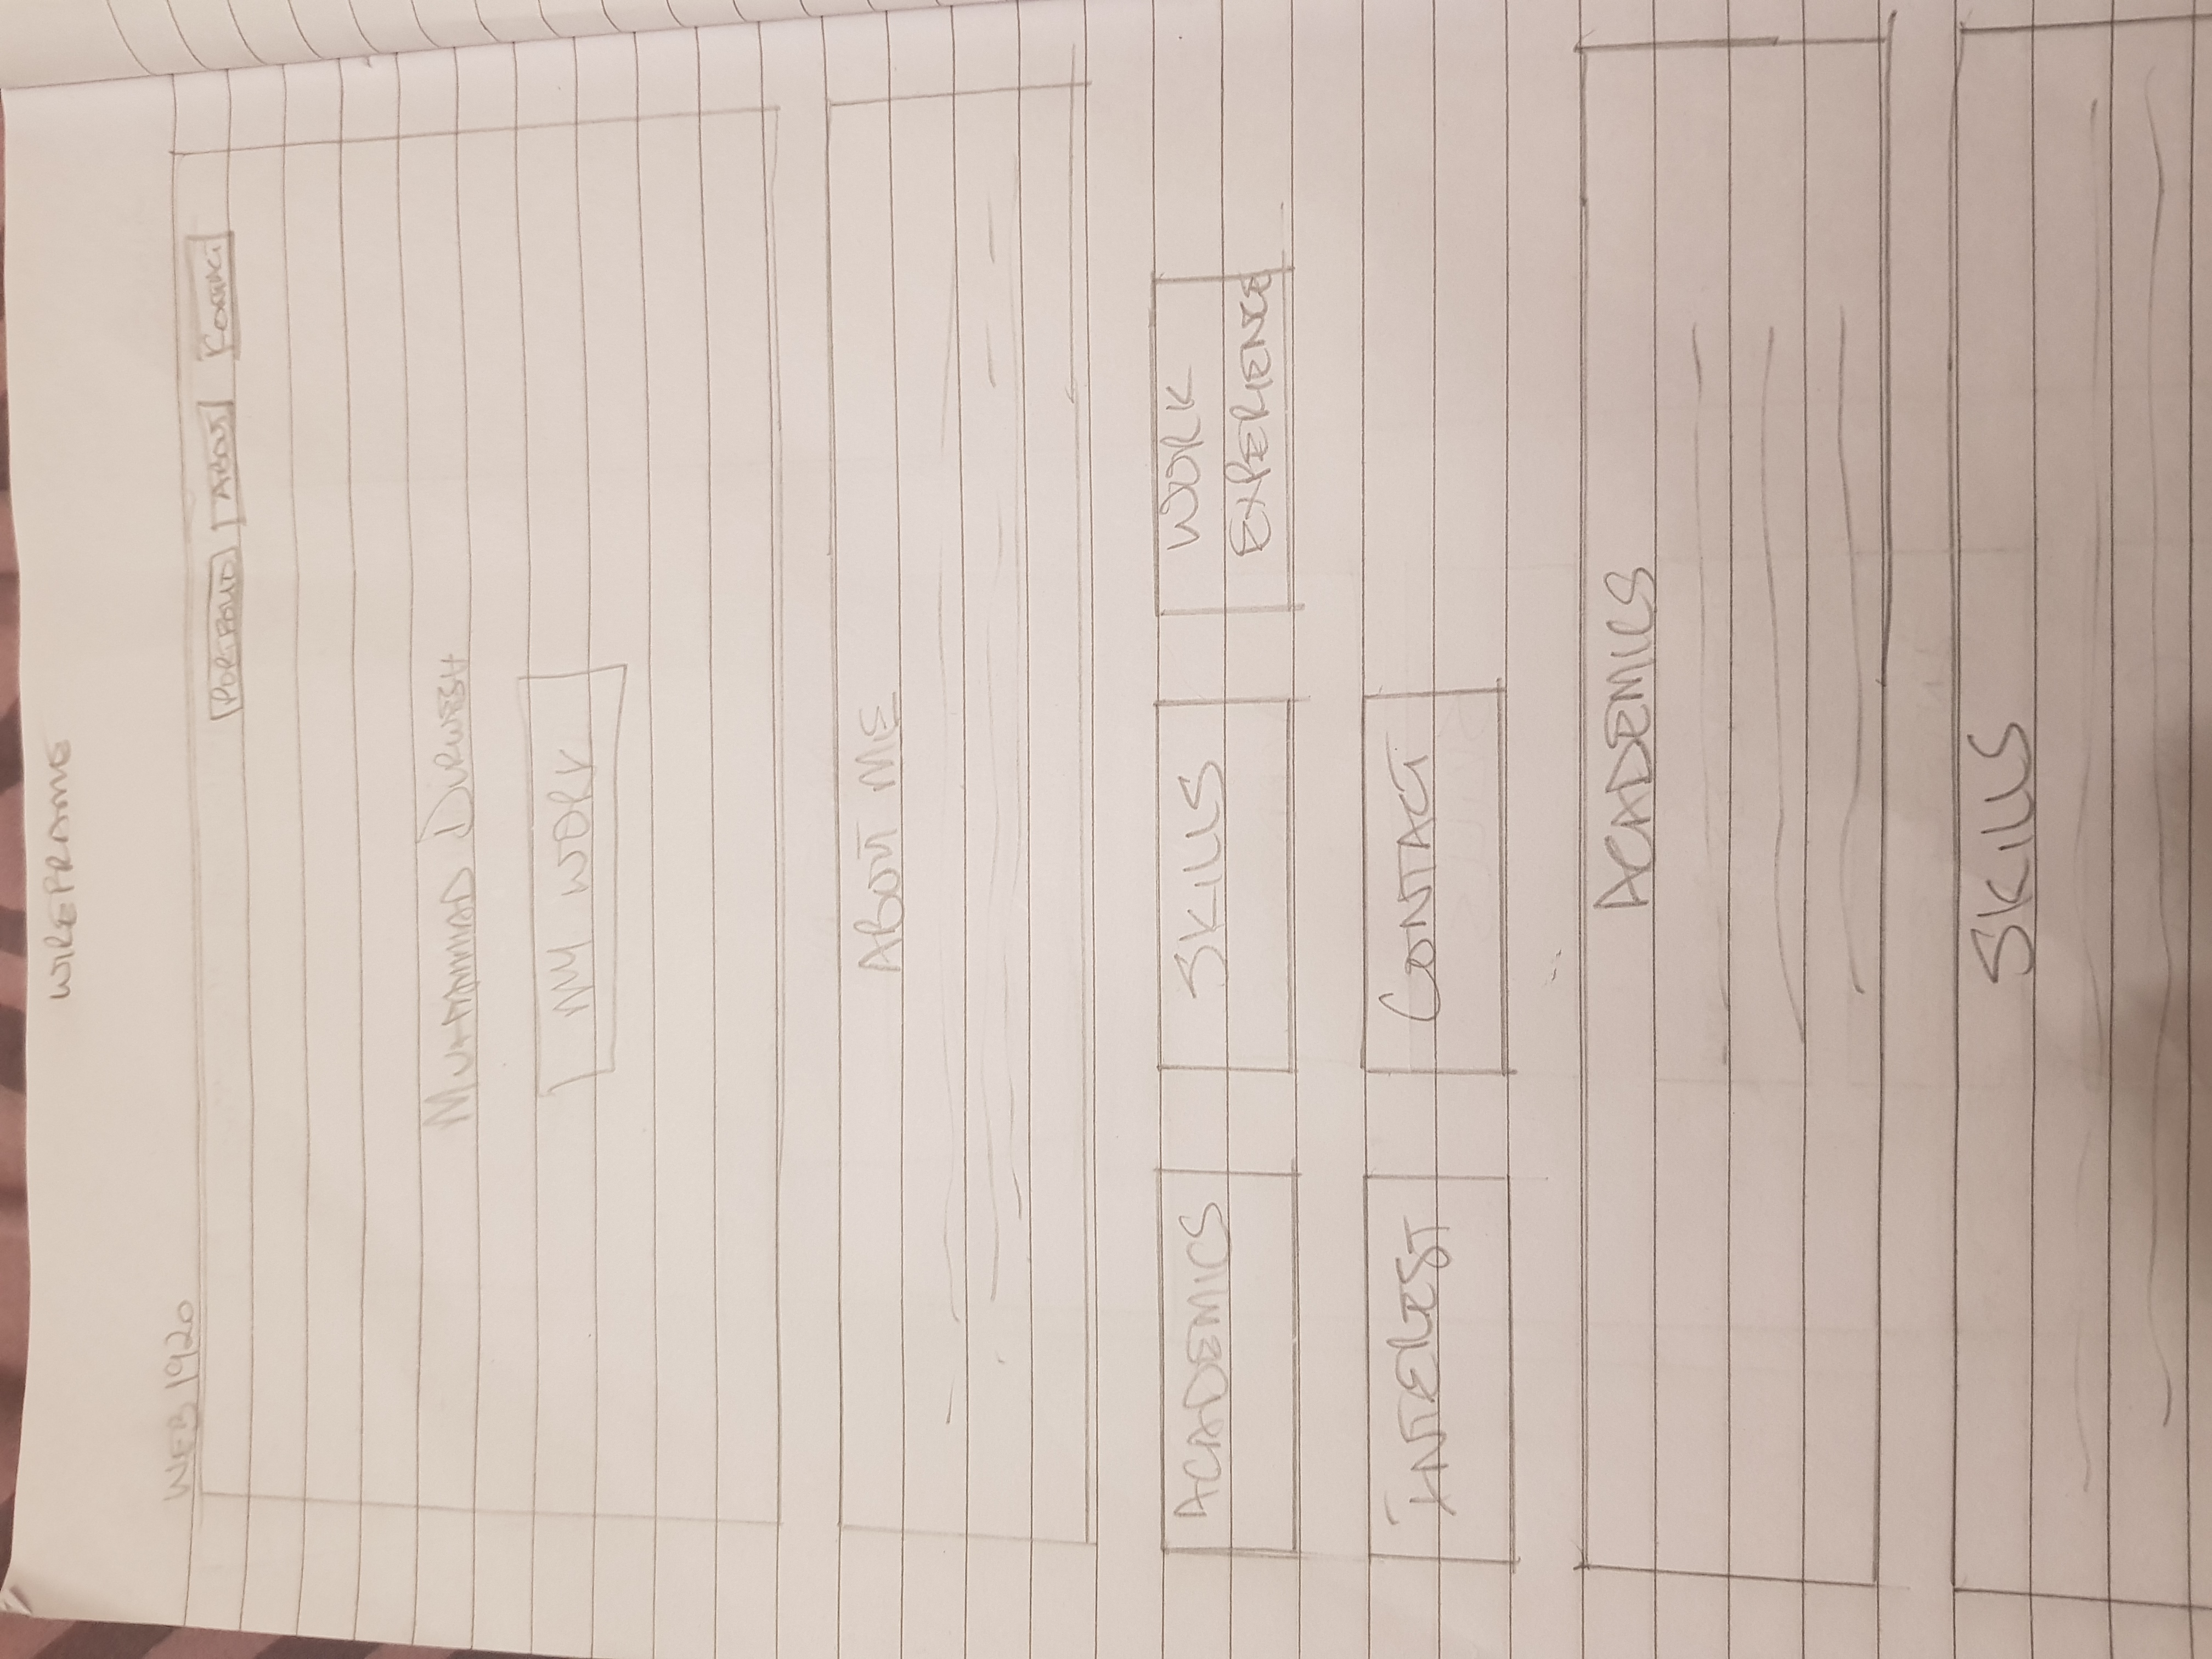 WIREFRAME
WEB 1920
PORTFOLIO ABOUT CONTACT
MUHAMMAD DURWESH
MY WORK
ABOUT ME
ACADEMICS SKILLS WORK
EXPERIENCE
INTEREST CONTACT
ACADEMICS
SKILLS